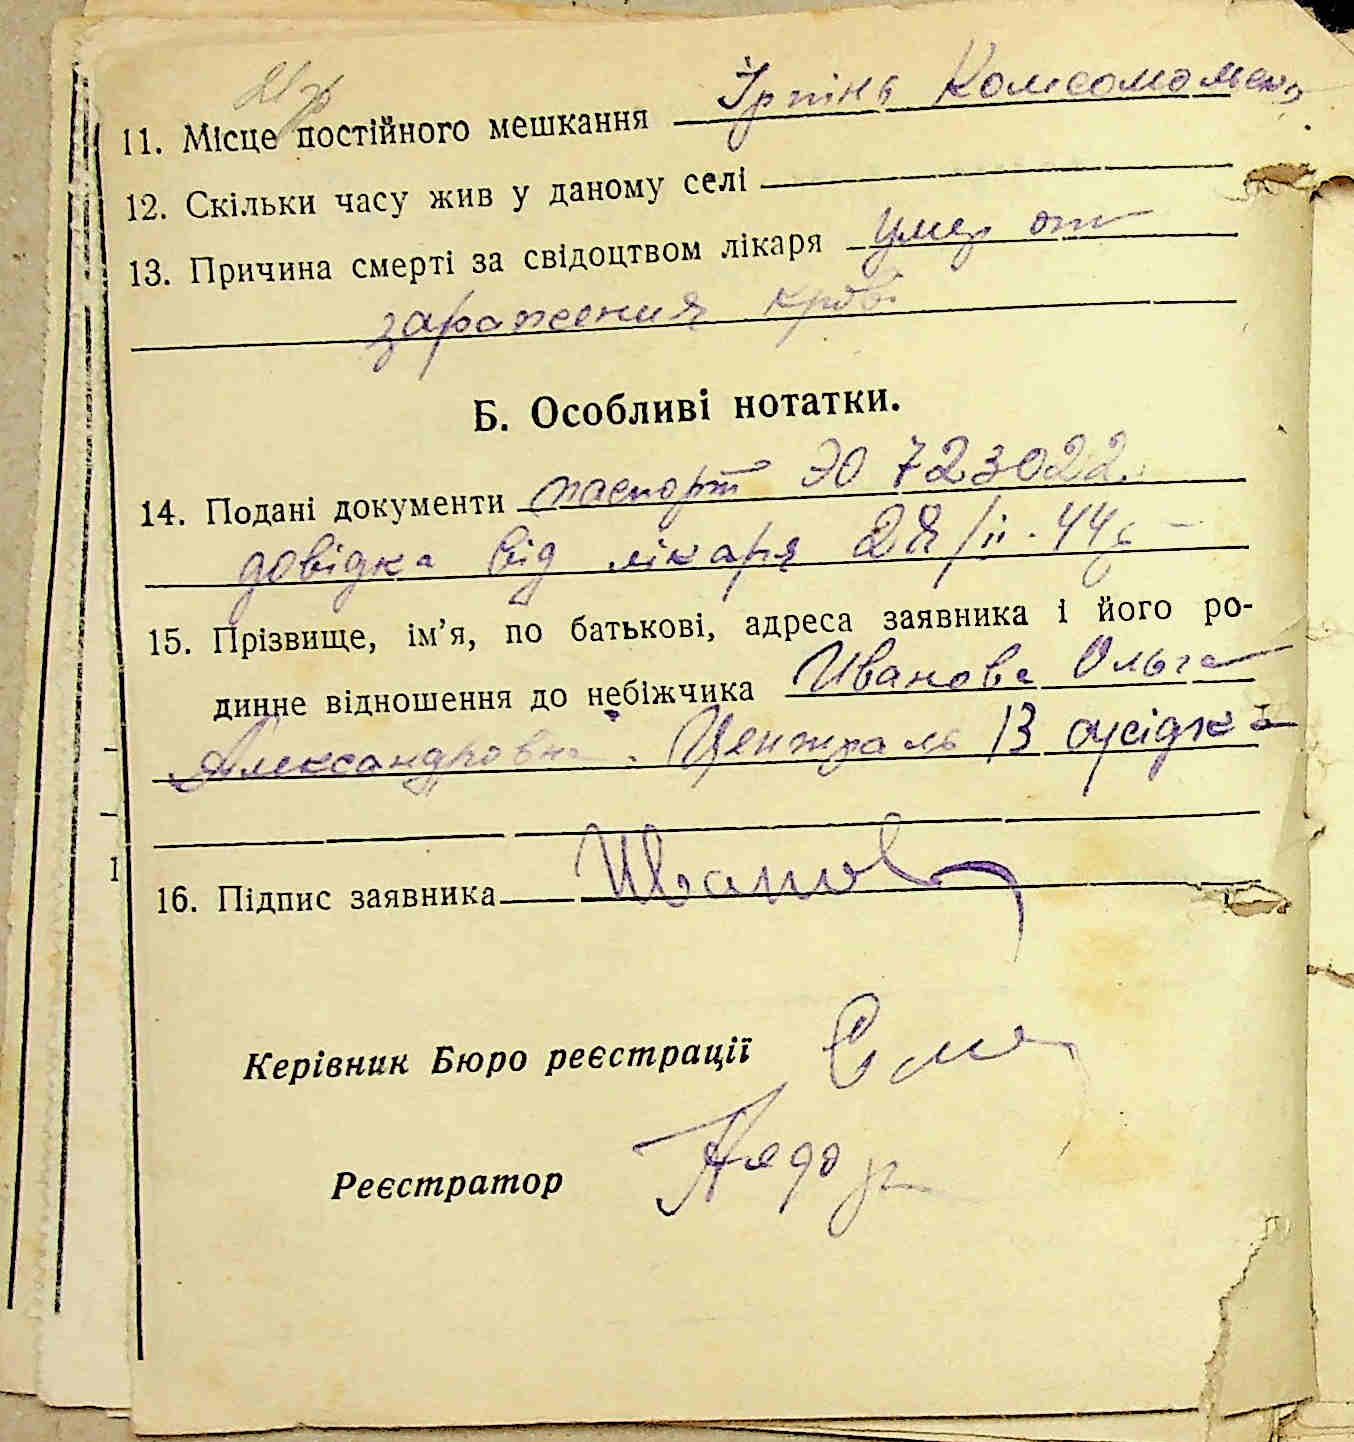 11. Місце постійного мешкання Ірпінь Комсомольсь
12. Скільки часу жив у даному селі
13. Причина смерті за свідоцтвом лікаря умер от
заражения крові
Б. Особливі нотатки.
14. Подані документи паспорт ЭО 723022.
довідка від лікаря 28/ІІ. 44 г
15. Прізвище, ім’я, по батькові, адреса заявника і його ро-
динне відношення до небіжчика Иванова Ольга
Александровна. Централь 13 сусідка
16. Підпис заявника Иванов
Керівник Бюро реєстрації
Реєстратор